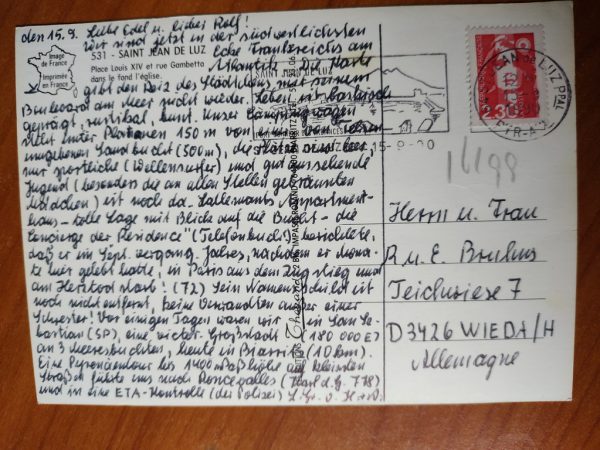 den 15.9. Liebe Edel u. lieber Rolf!
wir sind jetzt in der südwestlichsten
Ecke Frankreichs am
Atlantik. Die Karte
gibt den Reiz des Städtchens mit seinem
Boulevard am Meer nicht wieder. Leben ist baskisch
geprägt, rustikal, bunt. Unser Campingwagen
steht unter Platanen 150 m von einer von Felsen
umgebenen Sandbucht (500m), die
nur sportliche (Wellensurfer) und gut aussehende
Jugend (besonders die an allen Stellen gebräunten
Mädchen) ist noch da. Lallemants Appartement-
haus - tolle Lage mit Blick auf die Bucht - die
"Concierge der Residence" (Telefonbuch) berichtete,
daß er im Sept. vergang. Jahres, nachdem er
hier gelebt hatte, in Paris aus dem Zug stieg und
am Herztod starb! (72) Sein Namensschild ist
noch nicht entfernt, keine Verwandten außer einer
Schwester! Vor einigen Tagen waren wir in San Se-
bastian (SP), eine Großstadt 180 000 E
an 3 Meeresbuchten, heute in Biarritz (10 km).
Eine Pyrenäentour bis 1400 m Paßhöhe auf kleinsten
Straßen führte uns nach Roncevalles (Karl d. G. 778)
und in eine ETA-Kontrolle (der Polizei) L. Gr. v. H + D.
Image
de France
Imprimée
en France
531 - SAINT JEAN DE LUZ
Place Louis XIV et rue Gambetta
dans le fond l'église.
SAINT JEAN DE LUZ
15-9-90
2.30
16/98
Herrn u. Frau
R. u. E. Bruhns
Teichwiese 7
D3426 WIEDA/H
Allemagne